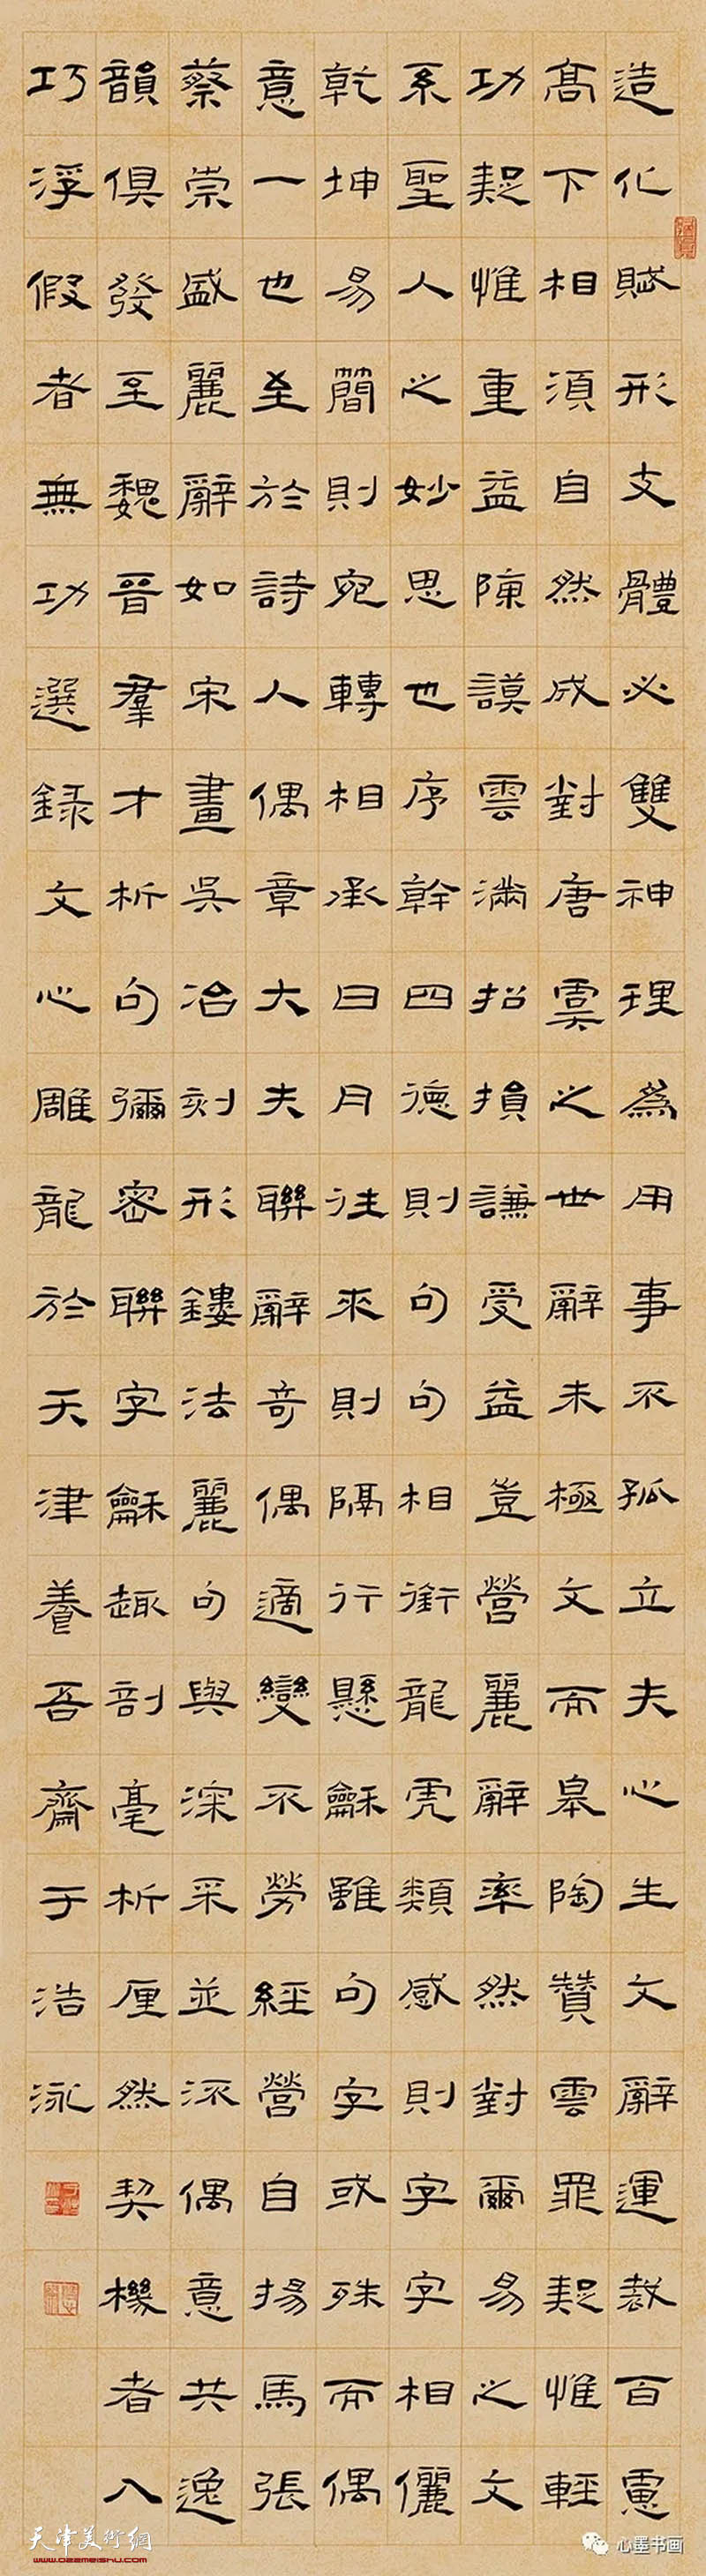 造化賦形支體必雙神理爲用事不孤立夫心生文辭運裁百慮
高下相須自然成對唐虞之世辭未極文而皋陶贊雲罪疑惟輕
功疑惟重益陳謨雲滿招損謙受益豈營麗辭率然對爾易之文
系聖人之妙思也序幹四德則句句相銜龍虎類感則字字相儷
乾坤易簡則宛轉相承日月往來則隔行懸龢雖句字或殊而偶
意一也至於詩人偶章大夫聯辭奇偶適變不勞經營自揚馬張
蔡崇盛麗辭如宋畫吳冶刻形鏤法麗句與深采並流偶意共逸
韻俱發至魏晉羣才析句彌密聯字龢趣剖毫析厘然契機者入
巧浮假者無功選錄文心雕龍於天津養吾齋于浩泳
天津美術網
www.022meishu.com
心墨书画